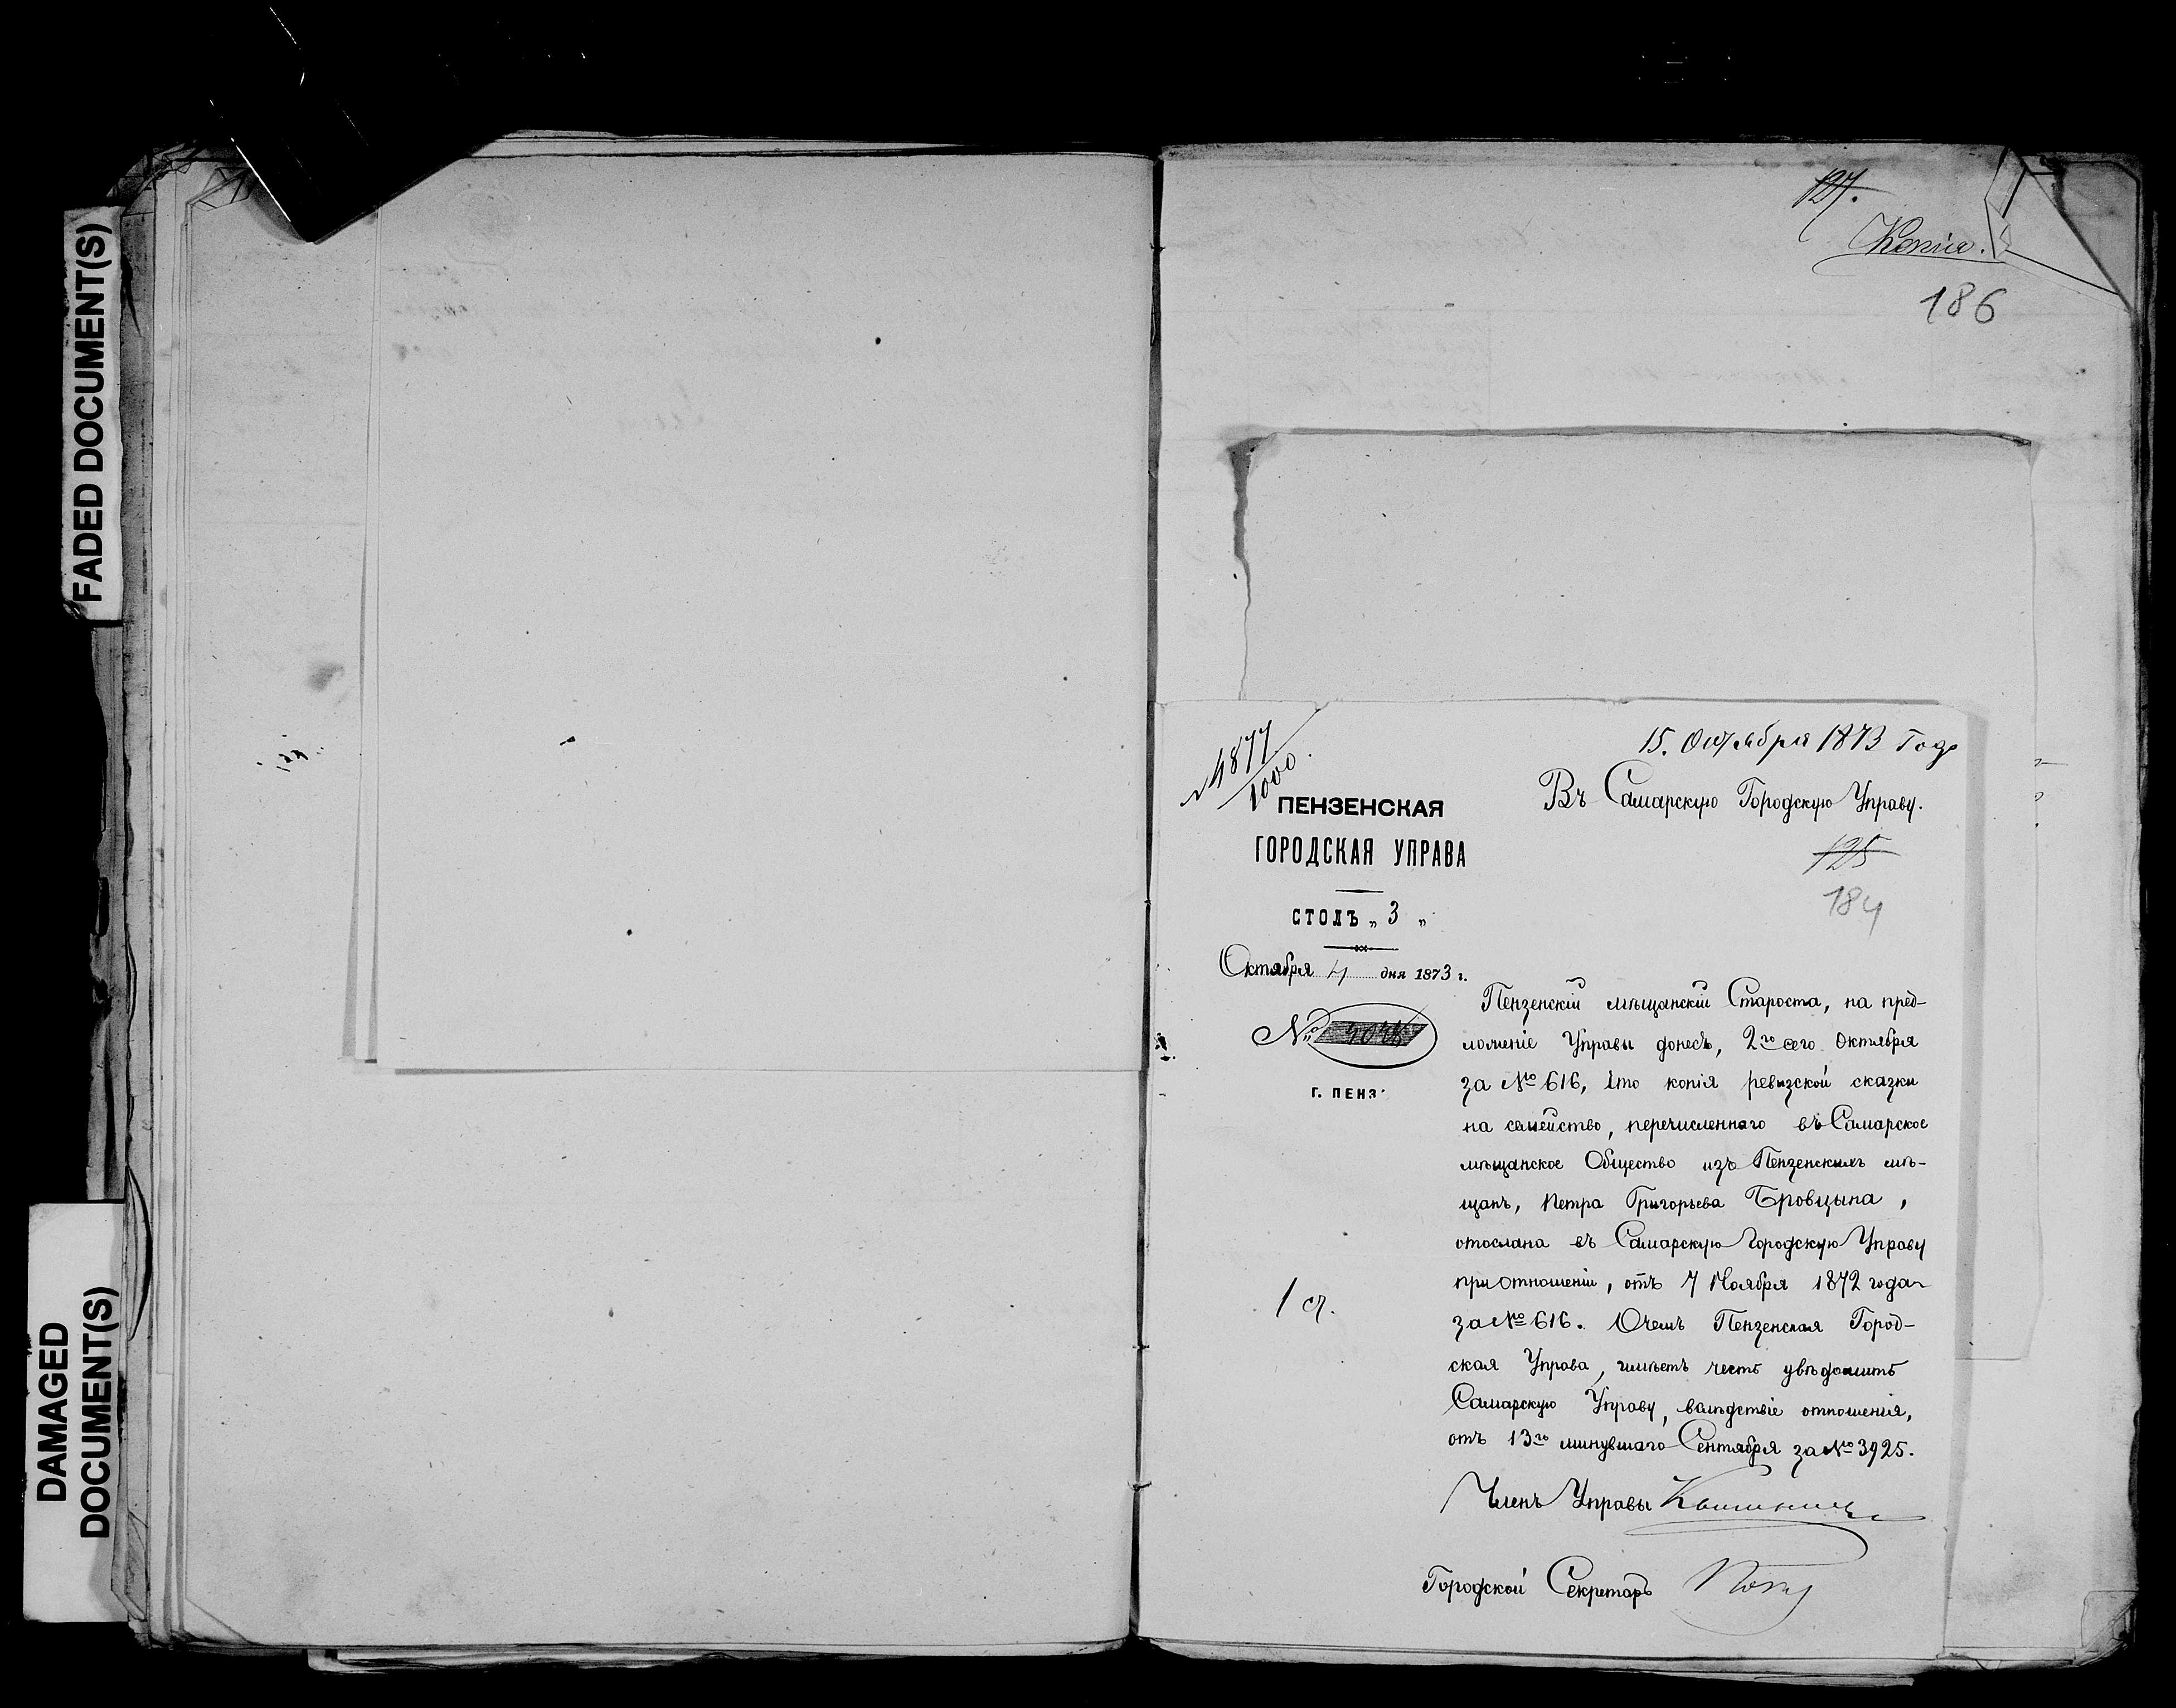 FADED DOCUMENT(S)
DAMAGED
DOCUMENT(S)
127.
Копія.
186
№ 4877
1000.
15. Октября 1873 Года
Въ Самарскую Городскую Управу.
125
184
ПЕНЗЕНСКАЯ
ГОРОДСКАЯ УПРАВА
СТОЛЪ „ 3 „
Октября 4 дня 1873 г.
№
Г. ПЕНЗ
Пензенскій мѣщанскій Староста, на пред-
ложеніе Управы донесъ, 2го сего Октября
за № 616, что копія ревизской сказки
на семейство, перечисленнаго въ Самарское
мѣщанское Общество изъ Пензенскихъ мѣ-
щанъ, Петра Григорьева Бровцына,
отослана въ Самарскую Городскую Управу
при отношеніи, отъ 7 Ноября 1872 года
за № 616. О чемъ Пензенская Город-
ская Управа, имѣетъ честь увѣдомить
Самарскую Управу, вслѣдствіе отношенія,
отъ 13го минувшаго Сентября за № 3925.
1 ст.
Членъ Управы
Городской Секретарь